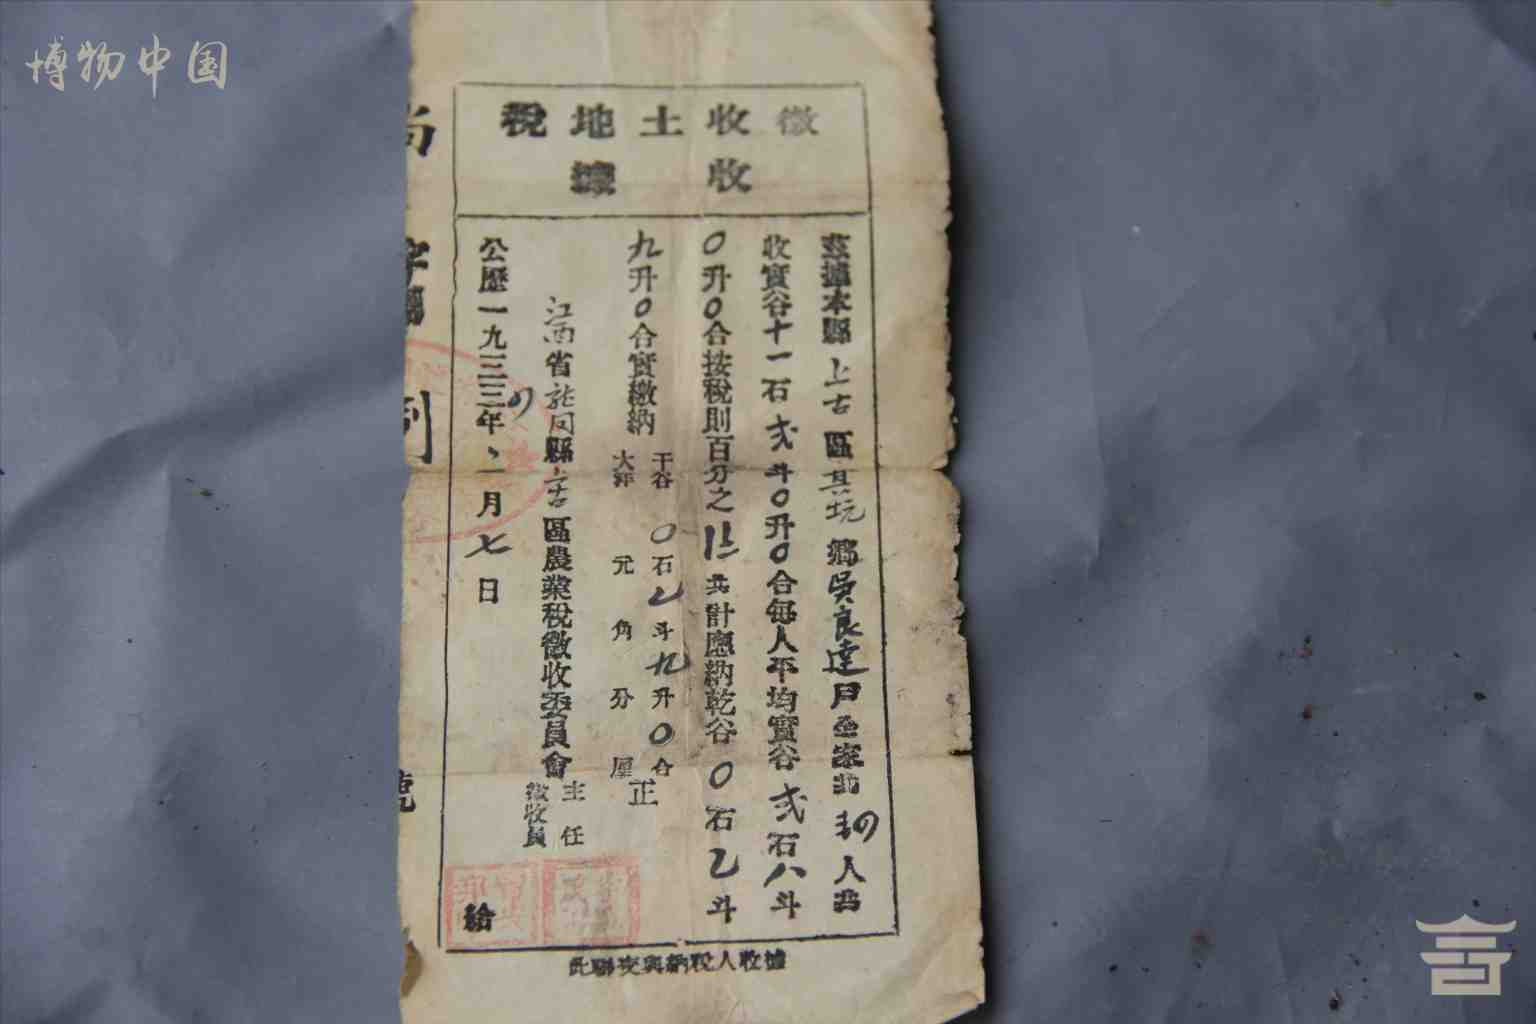 博物中国
徵收土地稅
收據
茲據本縣上古區其坑鄉吳良達戶全家共 四人共
收實谷十一石弍斗0升0合每人平均實谷弍石八斗
0升0合按稅則百分之 共計應納乾谷0石乙斗
九升0合實繳納
干谷0石乙斗九升0合
大洋 元 角 分 厘
正
江西省龍岡縣上古區農業稅徵收委員會
主任
徵收員
公歷一九三三年 月七日
給
尚 字第 列 號
此聯交與納稅人收據